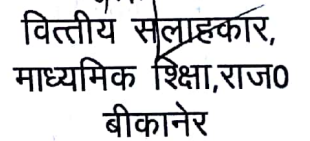 वित्तीय सलाहकार,
माध्यमिक शिक्षा,राज0
बीकानेर